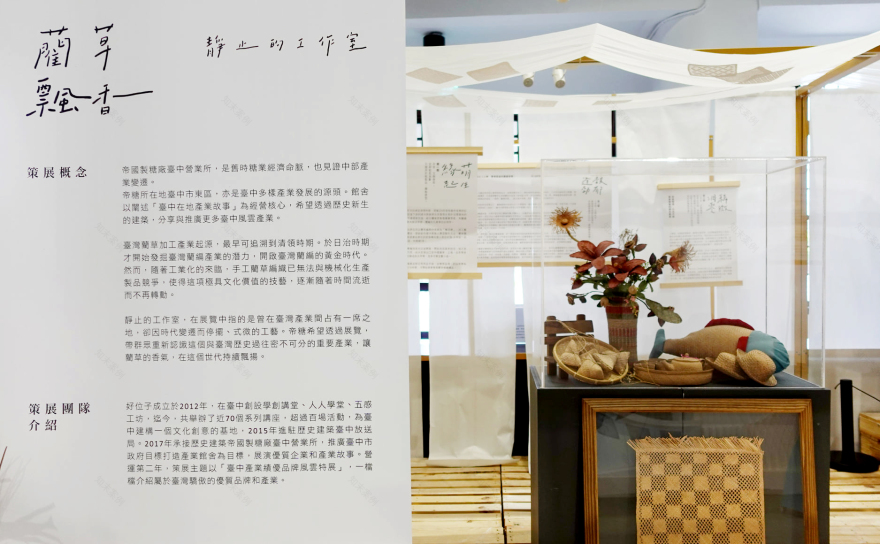 藺草
飄香
靜止的工作室
策展概念
帝國製糖廠臺中營業所，是舊時糖業經濟命脈，也見證中部產
業變遷。
帝糖所在地臺中市東區，亦是臺中多樣產業發展的源頭。館舍
以闡述「臺中在地產業故事」為經營核心，希望透過歷史新生
的建築，分享與推廣更多臺中風雲產業。
臺灣藺草加工產業起源，最早可追溯到清領時期。於日治時期
才開始發掘臺灣藺編產業的潛力，開啟臺灣藺編的黃金時代。
然而，隨著工業化的來臨，手工藺草編織已無法與機械化生產
製品競爭，使得這項極具文化價值的技藝，逐漸隨著時間流逝
而不再轉動。
靜止的工作室，在展覽中指的是曾在臺灣產業間占有一席之
地，卻因時代變遷而停擺、式微的工藝。帝糖希望透過展覽，
帶群眾重新認識這個與臺灣歷史過往密不可分的重要產業，讓
藺草的香氣，在這個世代持續飄揚。
策展團隊
介紹
好位子成立於2012年，在臺中創設學創講堂、人人學堂、五感
工坊，迄今，共舉辦了近70個系列講座，超過百場活動，為臺
中建構一個文化創意的基地，2015年進駐歷史建築臺中放送
局。2017年承接歷史建築帝國製糖廠臺中營業所，推廣臺中市
政府目標打造產業館舍為目標，展演優質企業和產業故事。營
運第二年，策展主題以「臺中產業績優品牌風雲特展」，一檔
檔介紹屬於臺灣驕傲的優質品牌和產業。